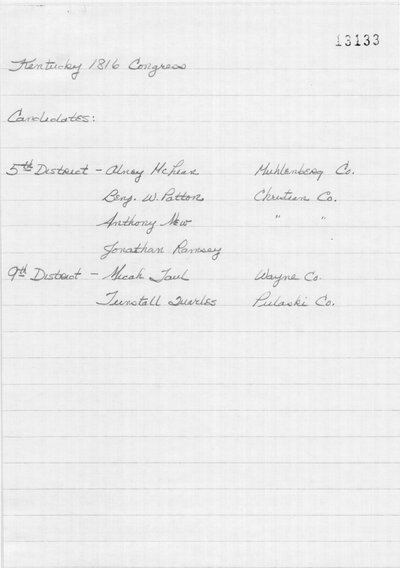 13133
Kentucky 1816 Congress
Candidates:
5th District - Alney McLean Muhlenberg Co.
Benj. W. Patton Christian Co.
Anthony New " "
Jonathan Ramsey
9th District - Micah Taul Wayne Co.
Tunstall Quarles Pulaski Co.